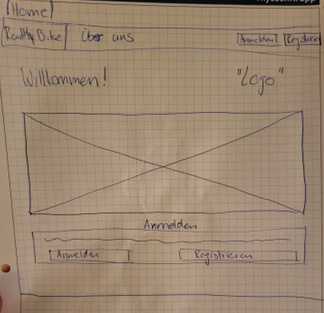 Home
RentMyBike Über uns Anmelden Registrieren
Willkommen! "Logo"
Anmelden
Anmelden Registrieren